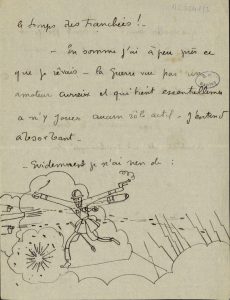 le temps des tranchées !_
_ En somme j'ai à peu près ce
que je rêvais _ la Guerre vue par un
amateur curieux et qui tient essentiellement
à n'y jouer aucun rôle actif _ j'entend
absorbant _
_ Evidemment je n'ai rien de :